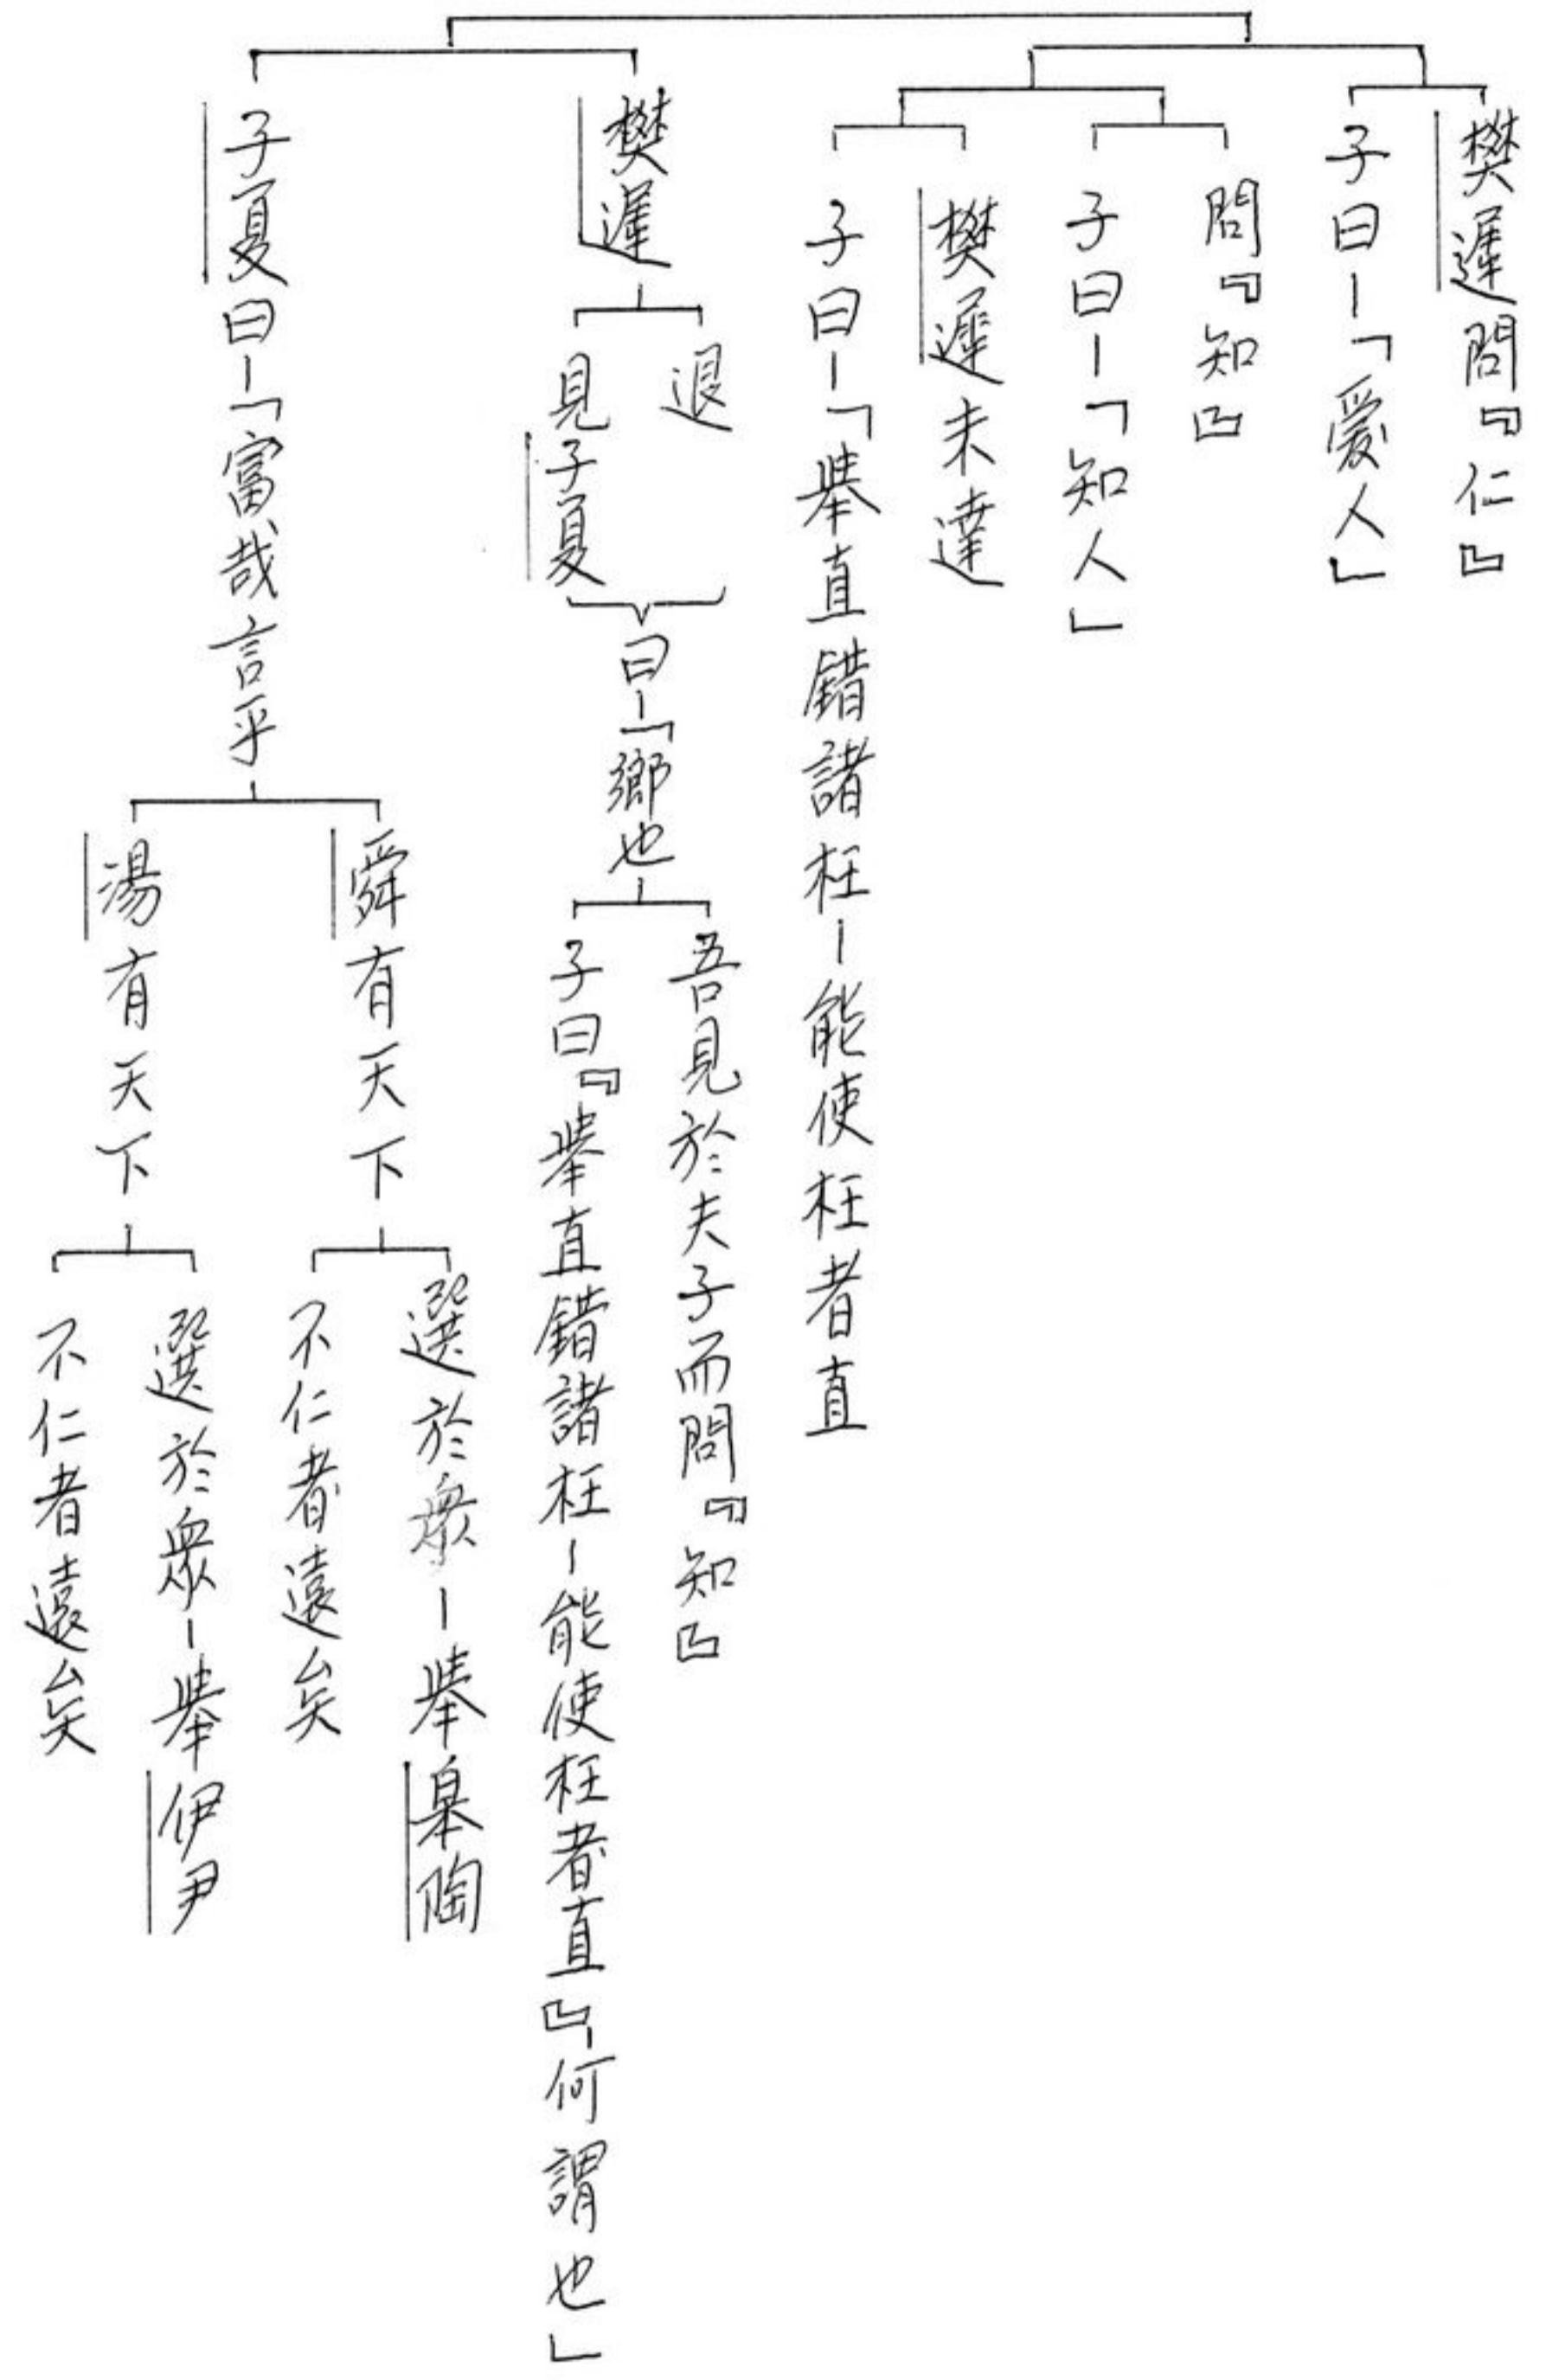 樊遲問『仁』
子曰－「愛人」
問『知』
子曰－「知人」
樊遲未達
子曰－「舉直錯諸枉－能使枉者直
樊遲
退
見子夏
曰－「鄉也
吾見於夫子而問『知』
子曰『舉直錯諸枉－能使枉者直』－何謂也」
子夏曰－「富哉言乎
舜有天下
選於眾－舉皋陶
不仁者遠矣
湯有天下
選於眾－舉伊尹
不仁者遠矣